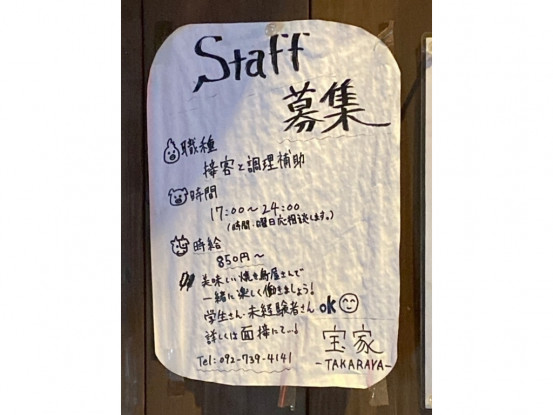 Staff
募集
職種
接客と調理補助
時間
17:00〜24:00
(時間・曜日応相談します。)
時給
850円〜
美味しい焼き鳥屋さんで
一緒に楽しく働きましょう!
学生さん・未経験者さん ok
詳しくは面接にて…!
宝家
Tel:092-739-4141
-TAKARAYA-